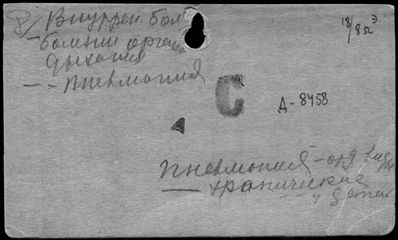 8/ Внутрен бол
- болезни орган
дыхания
-- Пневмония
С
Д-8458
А
Пневмония -
— хронические
-- у детей